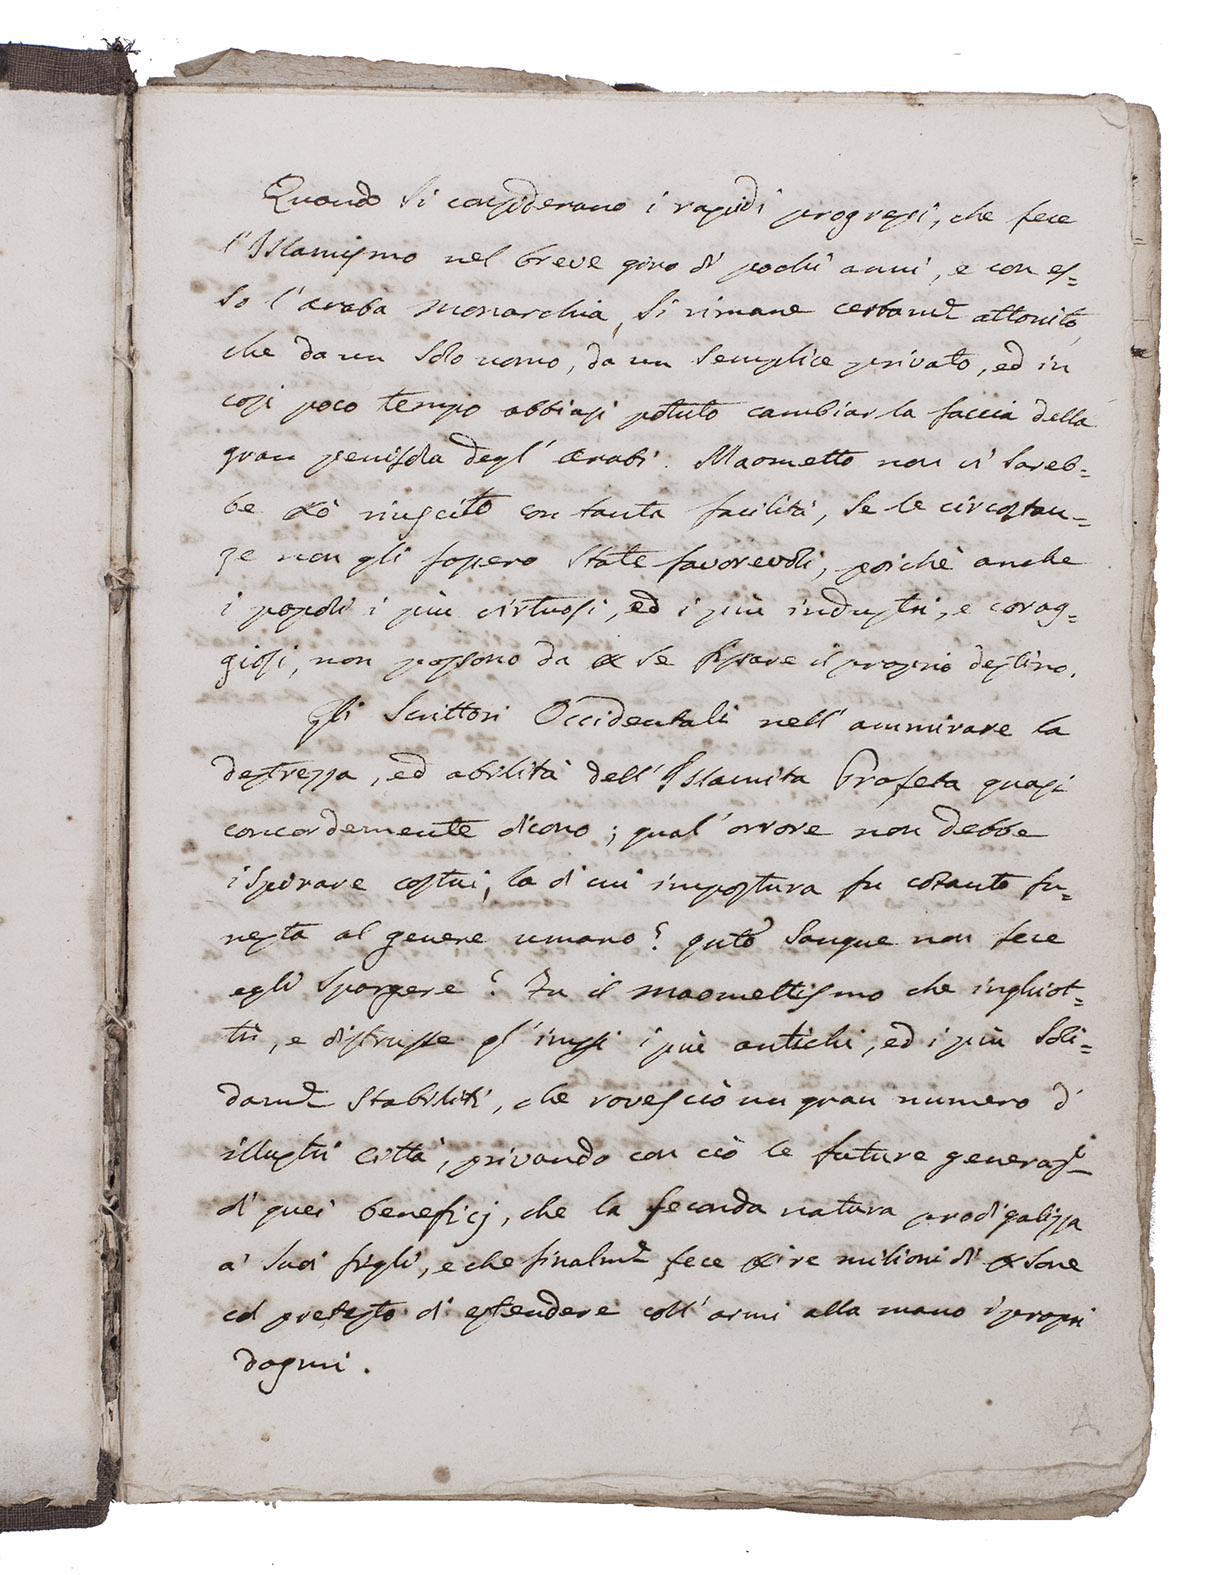 Quando si considerano i rapidi progressi, che fece
l'Islamismo nel breve giro di pochi anni, e con es=
so l'araba monarchia, si rimane certamte attonito,
che da un solo uomo, da un semplice privato, ed in
così poco tempo abbiasi potuto cambiar la faccia della
gran penisola degl' Arabi. Maometto non ci sareb=
be però riuscito con tanta facilità, se le circostan=
ze non gli fossero state favorevoli, poichè anche
i popoli i più virtuosi, ed i più industri, e corag=
giosi, non possono da per se fissare il proprio destino.
Gli Scrittori Occidentali nell' ammirare la
destrezza, ed abilità dell' Islamita Profeta quasi
concordemente dicono; qual' orrore non debbe
ispirare costui, la di cui impostura fu cotanto fu=
nesta al genere umano? quto sangue non fece
egli spargere? Fu il maomettismo che inghiot=
tì, e distrusse gl' imperi i più antichi, ed i più soli=
damte stabiliti, che rovesciò un gran numero di
illustri città, privando con ciò le future generazi
di quei beneficj, che la feconda natura prodigalizza
a' suoi figli, e che finalmte fece perire milioni di persone
col pretesto di estendere coll' armi alla mano i propri
dogmi.
A